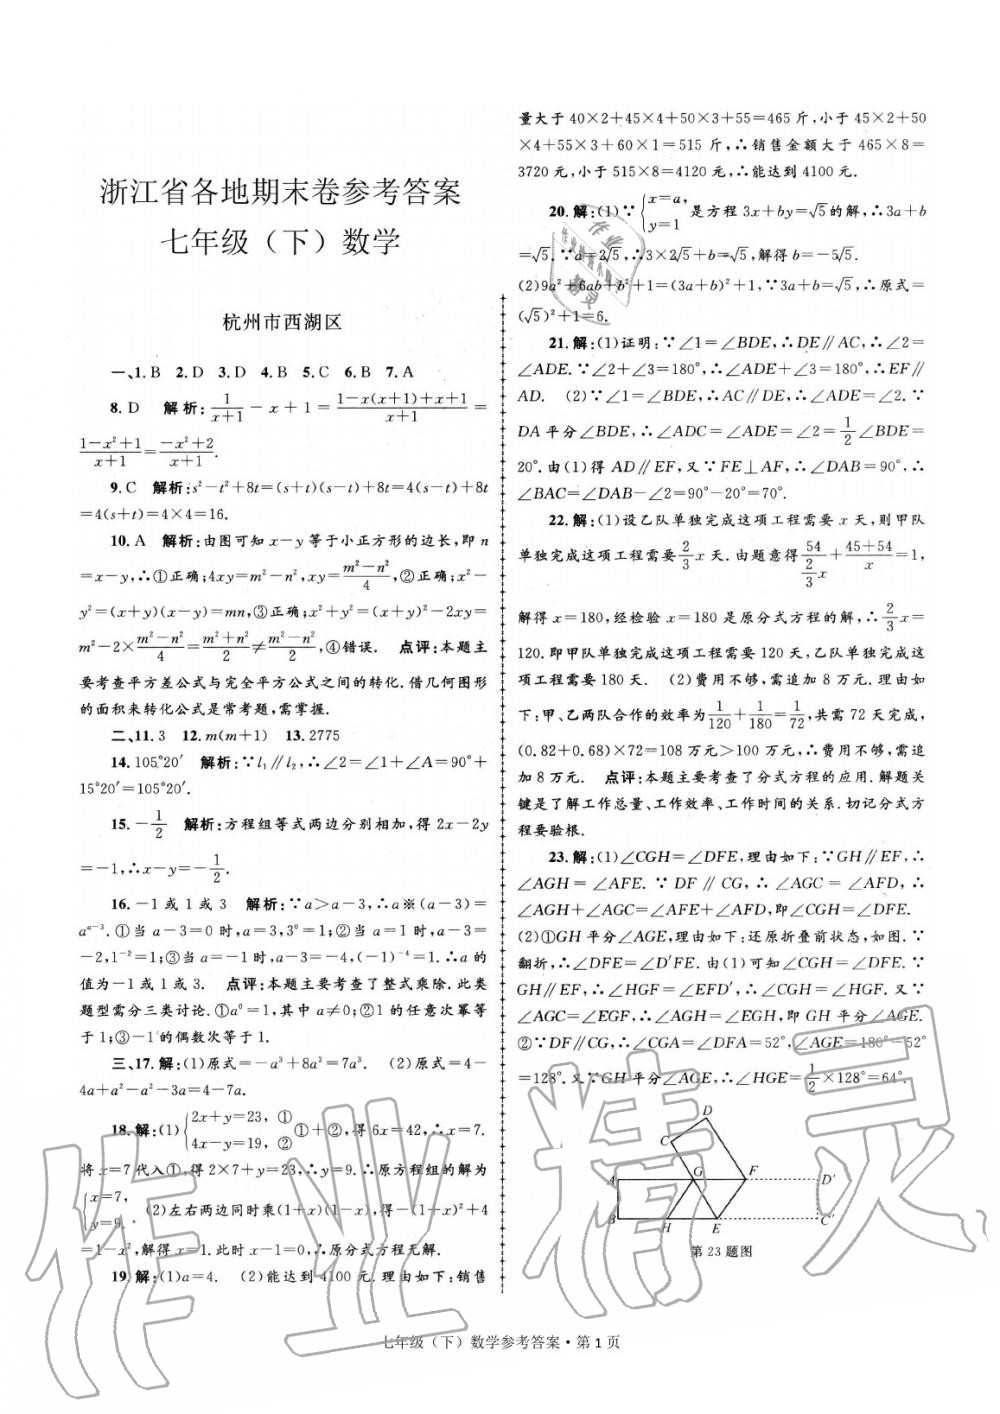 浙江省各地期末卷参考答案
七年级（下）数学
杭州市西湖区
一、1. B　2. D　3. D　4. B　5. C　6. B　7. A
8. D　解析:1/(x+1)－x＋1＝(1－x(x＋1)＋x＋1)/(x＋1)＝
(1－x²＋1)/(x＋1)＝(－x²＋2)/(x＋1).
9. C　解析:s²－t²＋8t＝(s＋t)(s－t)＋8t＝4(s－t)＋8t
＝4(s＋t)＝4×4＝16.
10. A　解析:由图可知 x－y 等于小正方形的边长,即 n
＝x－y,∴①正确;4xy＝m²－n²,xy＝(m²－n²)/4,②正确;x²－
y²＝(x＋y)(x－y)＝mn,③正确;x²＋y²＝(x＋y)²－2xy＝
m²－2×(m²－n²)/4＝(m²＋n²)/2≠(m²－n²)/2,④错误.　点评:本题主
要考查平方差公式与完全平方公式之间的转化.借几何图形
的面积来转化公式是常考题,需掌握.
二、11. 3　12. m(m＋1)　13. 2775
14. 105°20′　解析:∵l₁∥l₂,∴∠2＝∠1＋∠A＝90°＋
15°20′＝105°20′.
15. －1/2　解析:方程组等式两边分别相加,得 2x－2y
＝－1,∴x－y＝－1/2.
16. －1 或 1 或 3　解析:∵a＞a－3,∴a※(a－3)＝
a^(a－3).①当 a－3＝0 时,a＝3,3⁰＝1;②当 a＝1 时,a－3＝
－2,1⁻²＝1;③当 a＝－1 时,a－3＝－4,(－1)⁻⁴＝1.∴a 的
值为－1 或 1 或 3.　点评:本题主要考查了整式乘除.此类
题型需分三类讨论.①a⁰＝1,其中 a≠0;②1 的任意次幂等
于 1;③－1 的偶数次等于 1.
三、17. 解:(1)原式＝－a³＋8a³＝7a³.　(2)原式＝4－
4a＋a²－a²－3a＝4－7a.
18. 解:(1){2x＋y＝23, ① 4x－y＝19, ② ①＋②,得 6x＝42,∴x＝7.
将 x＝7 代入①,得 2×7＋y＝23,∴y＝9.∴原方程组的解为
{x＝7, y＝9.　(2)左右两边同时乘(1＋x)(1－x),得－(1－x)²＋4
＝1－x²,解得 x＝1.此时 1－x＝0,∴原分式方程无解.
19. 解:(1)a＝4.　(2)能达到 4100 元.理由如下:销售
量大于 40×2＋45×4＋50×3＋55＝465 斤,小于 45×2＋50
×4＋55×3＋60×1＝515 斤,∴销售金额大于 465×8＝
3720 元,小于 515×8＝4120 元,∴能达到 4100 元.
20. 解:(1)∵{x＝a, y＝1 是方程 3x＋by＝√5的解,∴3a＋b
＝√5.∵a＝2√5,∴3×2√5＋b＝√5,解得 b＝－5√5.
(2)9a²＋6ab＋b²＋1＝(3a＋b)²＋1,∵3a＋b＝√5,∴原式＝
(√5)²＋1＝6.
21. 解:(1)证明:∵∠1＝∠BDE,∴DE∥AC,∴∠2＝
∠ADE.∵∠2＋∠3＝180°,∴∠ADE＋∠3＝180°,∴EF∥
AD.　(2)∵∠1＝∠BDE,∴AC∥DE,∴∠ADE＝∠2.∵
DA 平分∠BDE,∴∠ADC＝∠ADE＝∠2＝1/2∠BDE＝
20°.由(1)得 AD∥EF,又∵FE⊥AF,∴∠DAB＝90°,∴
∠BAC＝∠DAB－∠2＝90°－20°＝70°.
22. 解:(1)设乙队单独完成这项工程需要 x 天,则甲队
单独完成这项工程需要 2/3 x 天.由题意得 54/(2/3 x)＋(45＋54)/x＝1,
解得 x＝180,经检验 x＝180 是原分式方程的解,∴2/3 x＝
120.即甲队单独完成这项工程需要 120 天,乙队单独完成这
项工程需要 180 天.　(2)费用不够,需追加 8 万元.理由如
下:甲、乙两队合作的效率为 1/120＋1/180＝1/72,共需 72 天完成,
(0.82＋0.68)×72＝108 万元＞100 万元,∴费用不够,需追
加 8 万元.　点评:本题主要考查了分式方程的应用.解题关
键是了解工作总量、工作效率、工作时间的关系.切记分式方
程要验根.
23. 解:(1)∠CGH＝∠DFE,理由如下:∵GH∥EF,∴
∠AGH＝∠AFE.∵DF∥CG,∴∠AGC＝∠AFD,∴
∠AGH＋∠AGC＝∠AFE＋∠AFD,即∠CGH＝∠DFE.
(2)①GH 平分∠AGE,理由如下:还原折叠前状态,如图.∵
翻折,∴∠DFE＝∠D′FE.由(1)可知∠CGH＝∠DFE.∵
GH∥EF,∴∠HGF＝∠EFD′,∴∠CGH＝∠HGF.又∵
∠AGC＝∠EGF,∴∠AGH＝∠EGH,即 GH 平分∠AGE.
②∵DF∥CG,∴∠CGA＝∠DFA＝52°,∠AGE＝180°－52°
＝128°.又∵GH 平分∠AGE,∴∠HGE＝1/2×128°＝64°.
D
C
A G F D′
B H E C′
第 23 题图
七年级（下）数学参考答案・第 1 页
作业精灵
作业
作业精灵
精灵